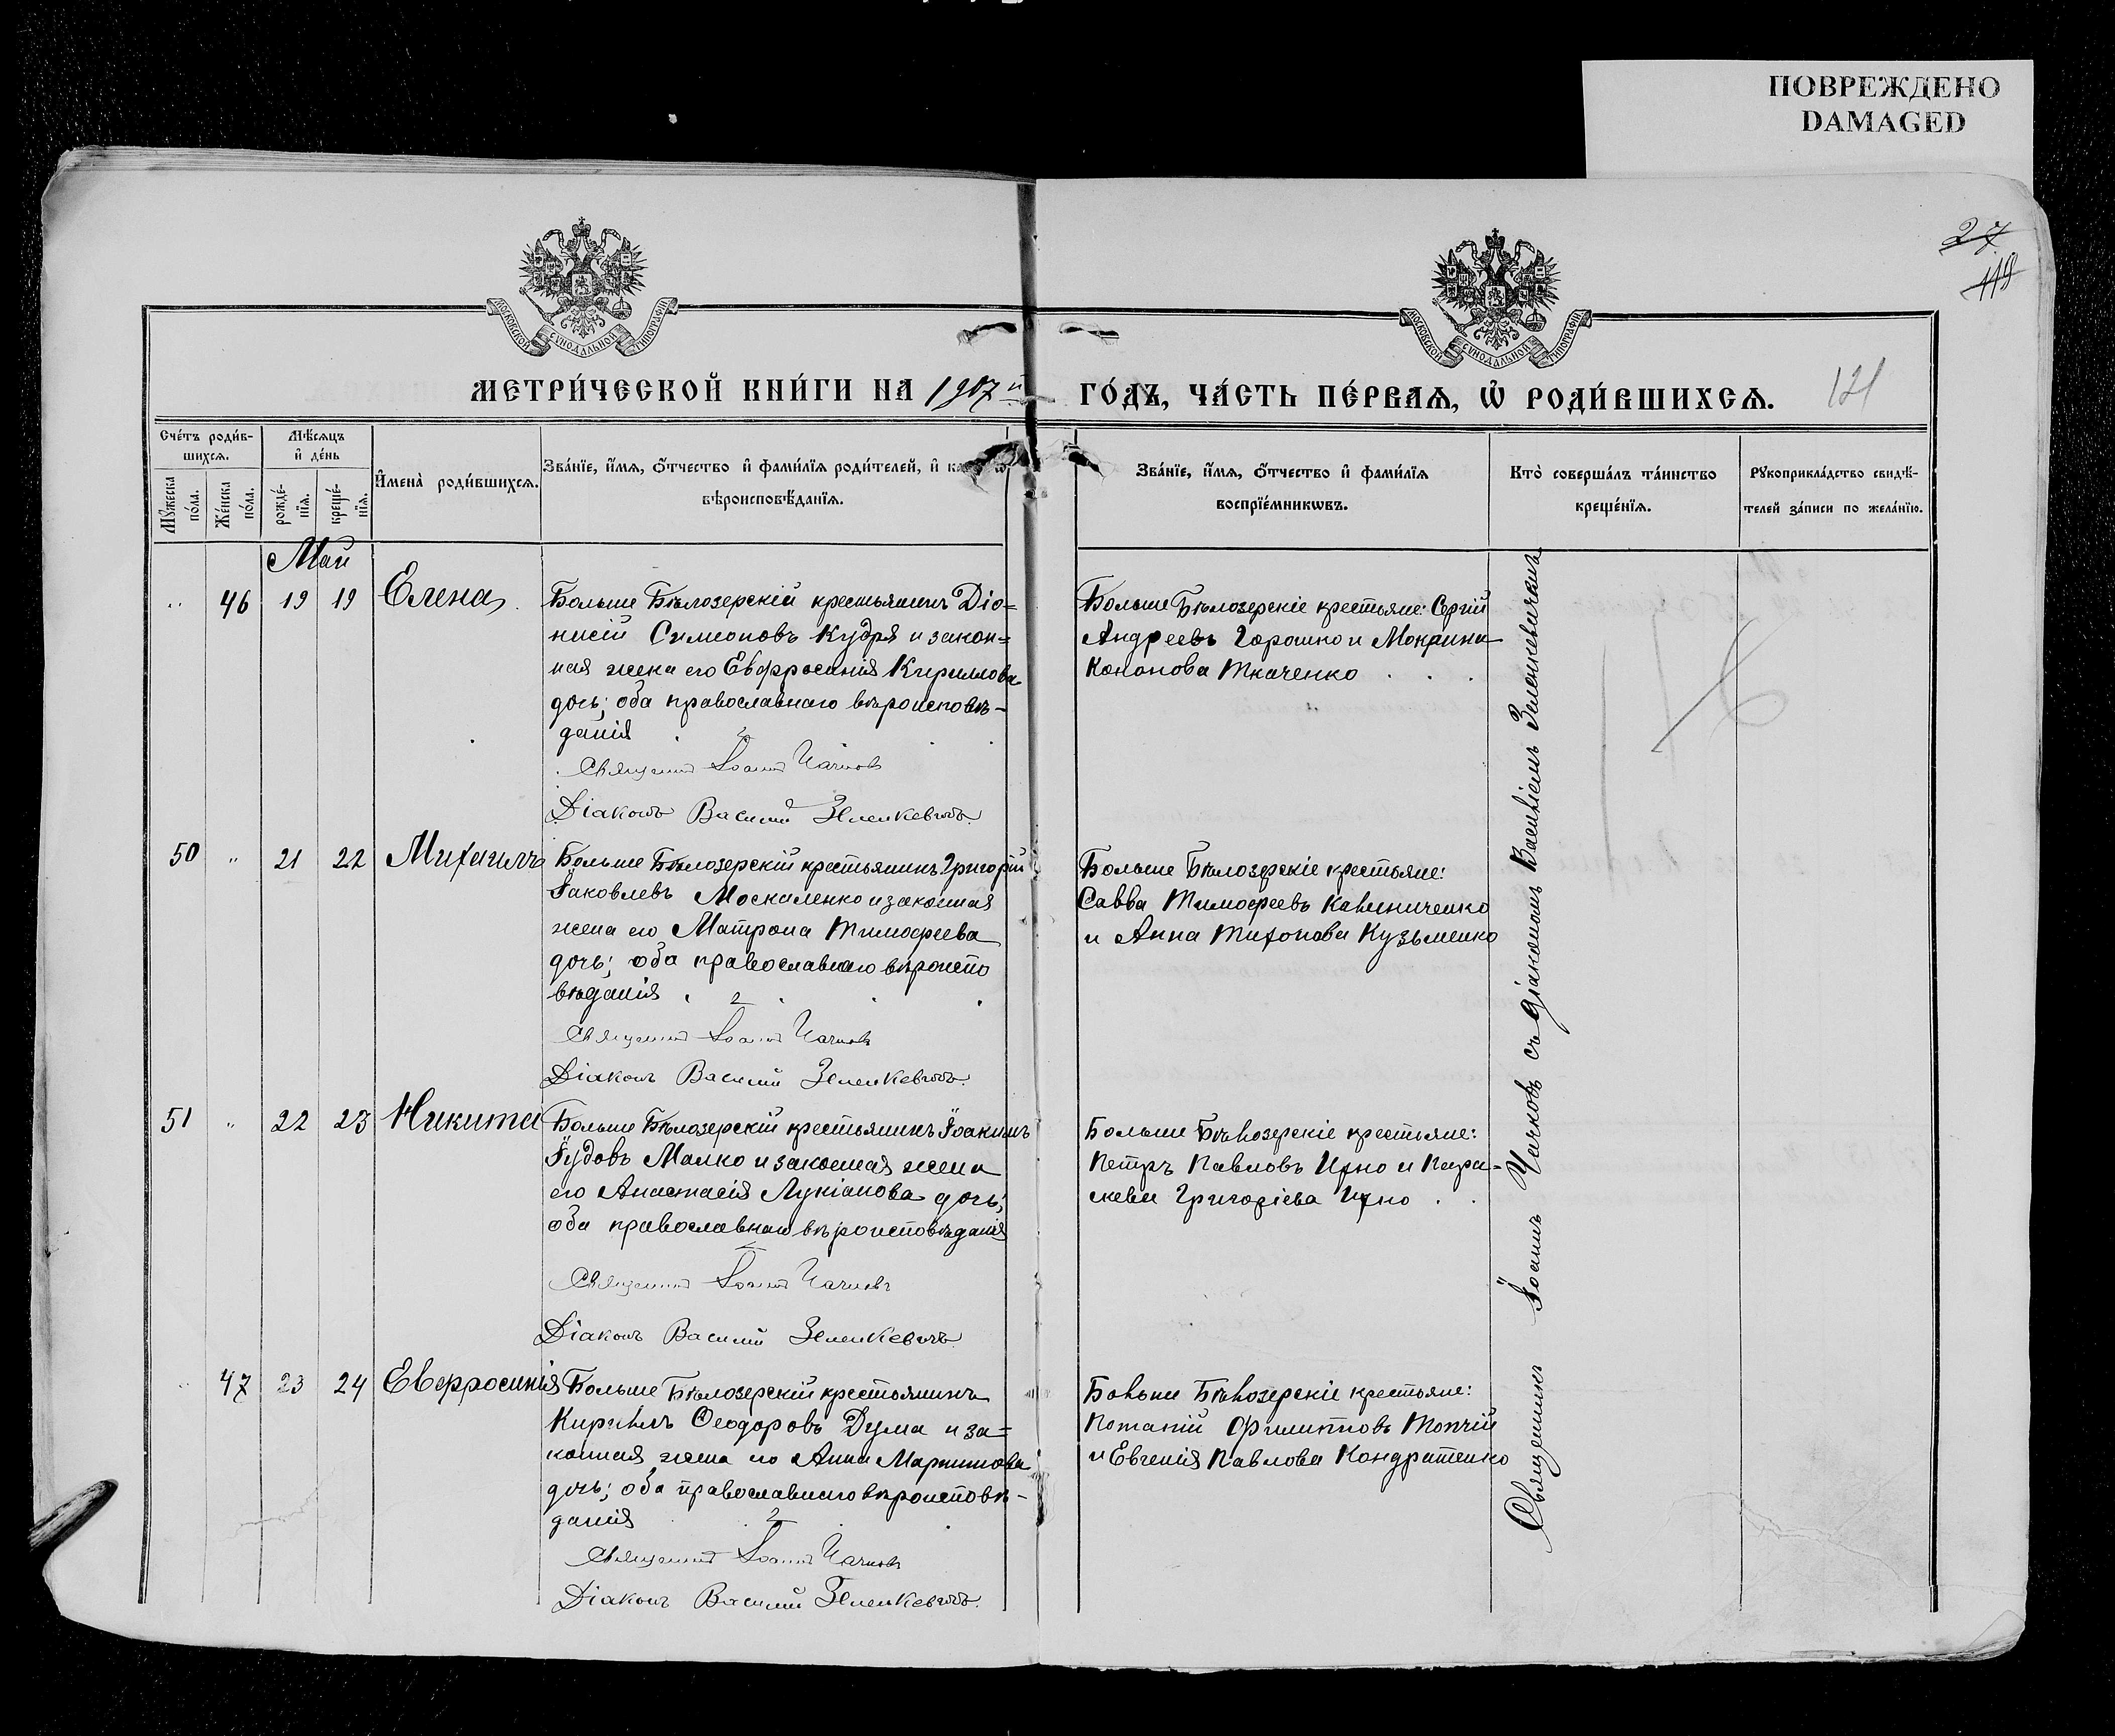 ПОВРЕЖДЕНО
DAMAGED
27
119
МОСКОВСКОЙ СѴНОДАЛЬНОЙ ТИПОГРАФІИ
МОСКОВСКОЙ СѴНОДАЛЬНОЙ ТИПОГРАФІИ
МЕТРИ́ЧЕСКОЙ КНИ́ГИ НА 1907й ГО́ДЪ, ЧА́СТЬ ПЕ́РВАѦ, Ѡ҆ РОДИ́ВШИХСѦ.
121
Сче́тъ роди́в-
шихсѧ.
Мѣ́сѧцъ
и҆ де́нь
Мꙋ́жеска
по́ла.
Же́нска
по́ла.
рожде́-
нїѧ.
креще́-
нїѧ.
И҆мена̀ роди́вшихсѧ.
Зва́нїе, и҆́мѧ, ѻ҆́тчество и҆ фами́лїѧ роди́телей, и҆
вѣроисповѣ́данїѧ.
Зва́нїе, и҆́мѧ, ѻ҆́тчество и҆ фами́лїѧ
воспрїе́мникѡвъ.
Кто̀ соверша́лъ та́инство
креще́нїѧ.
Рꙋкоприкла́дство свидѣ́-
телей за́писи по жела́нїю.
Май
46 19 19 Елена
Больше Бѣлозерскій крестьянинъ Діо=
нисій Симеоновъ Кудря и закон=
ная жена его Евфросинія Кириллова
дочь; оба православнаго вѣроисповѣ-
данія
Священникъ Іоаннъ Чачковъ
Діаконъ Василій Зеленкевичъ.
Больше Бѣлозерскіе крестьяне: Сергій
Андреевъ Горошко и Мокрина
Кононова Ткаченко
50 " 21 22 Михаилъ
Больше Бѣлозерскій крестьянинъ Григорій
Іаковлевъ Москаленко и законная
жена его Матрона Тимофеева
дочь; оба православнаго вѣроиспо
вѣданія
Священникъ Іоаннъ Чачковъ
Діаконъ Василій Зеленкевичъ.
Больше Бѣлозерскіе крестьяне:
Савва Тимофеевъ Калиниченко
и Анна Тихонова Кузьменко
51 " 22 23 Никита
Больше Бѣлозерскій крестьянинъ Іоакимъ
Іудовъ Малко и законная жена
его Анастасія Лукіанова дочь;
оба православнаго вѣроисповѣданія
Священникъ Іоаннъ Чачковъ
Діаконъ Василій Зеленкевичъ.
Больше Бѣлозерскіе крестьяне:
Петръ Павловъ Ихно и Пара-
скева Григоріева Ихно
47 23 24 Евфросинія
Больше Бѣлозерскій крестьянинъ
Кириллъ Феодоровъ Дума и за=
конная жена его Анна Мартинова
дочь; оба православнаго вѣроисповѣ-
данія
Священникъ Іоаннъ Чачковъ
Діаконъ Василій Зеленкевичъ.
Больше Бѣлозерскіе крестьяне:
Потапій Филипповъ Топчій
и Евгенія Павлова Кондратенко
Священникъ Іоаннъ Чачковъ съ діакономъ Василіемъ Зеленкевичемъ